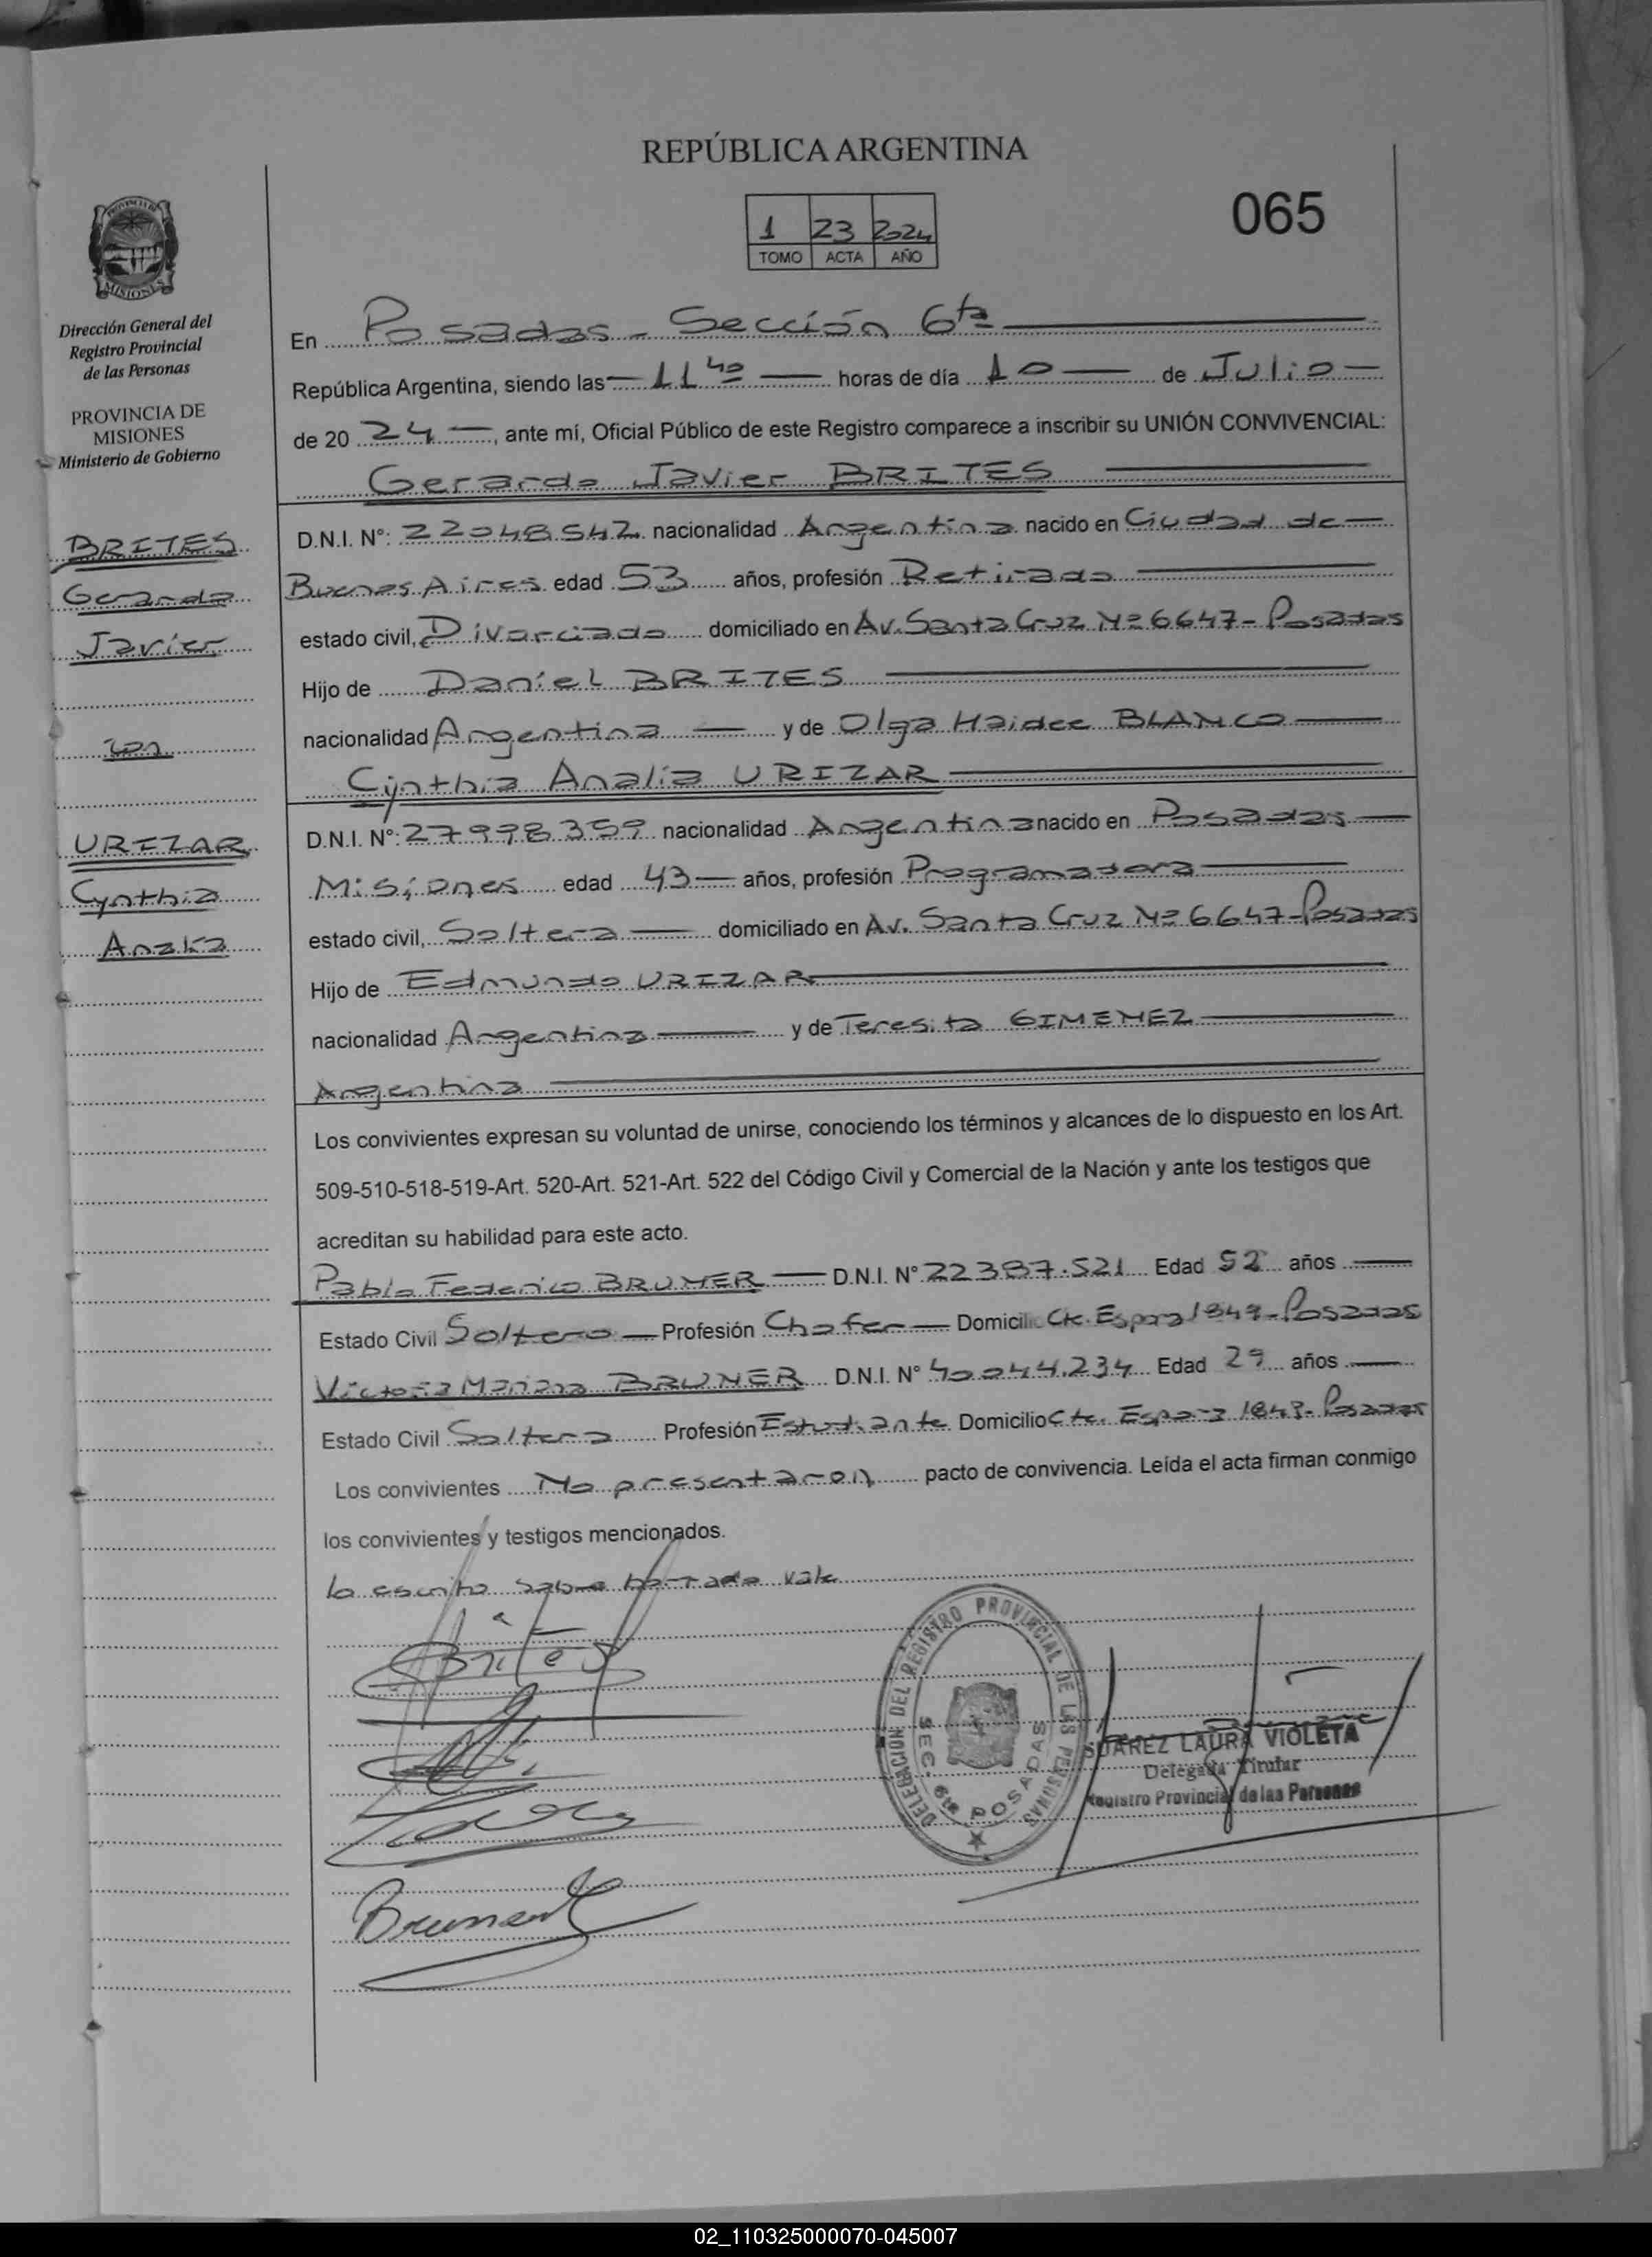 REPÚBLICA ARGENTINA
1 23 2024
TOMO ACTA AÑO
065
PROVINCIA DE
MISIONES
Dirección General del
Registro Provincial
de las Personas
PROVINCIA DE
MISIONES
Ministerio de Gobierno
BRITES
Gerardo
Javier
con
URIZAR
Cynthia
Analia
En Posadas - Sección 6ta
República Argentina, siendo las 11 40 horas de día 10 de Julio
de 20 24, ante mí, Oficial Público de este Registro comparece a inscribir su UNIÓN CONVIVENCIAL:
Gerardo Javier BRITES
D.N.I. N°: 22048542 nacionalidad Argentina nacido en Ciudad de
Buenos Aires edad 53 años, profesión Retirado
estado civil, Divorciado domiciliado en Av. Santa Cruz Nº 6647 - Posadas
Hijo de Daniel BRITES
nacionalidad Argentina y de Olga Haidee BLANCO
Cynthia Analia URIZAR
D.N.I. N°: 27998359 nacionalidad Argentina nacido en Posadas
Misiones edad 43 años, profesión Programadora
estado civil, Soltera domiciliado en Av. Santa Cruz Nº 6647 - Posadas
Hijo de Edmundo URIZAR
nacionalidad Argentina y de Teresita GIMENEZ
Argentina
Los convivientes expresan su voluntad de unirse, conociendo los términos y alcances de lo dispuesto en los Art.
509-510-518-519-Art. 520-Art. 521-Art. 522 del Código Civil y Comercial de la Nación y ante los testigos que
acreditan su habilidad para este acto.
Pablo Federico BRUNER D.N.I. N° 22387.521 Edad 52 años
Estado Civil Soltero Profesión Chofer Domicilio Cte. Espora 1849 - Posadas
Victoria Mariana BRUNER D.N.I. N° 40.044.234 Edad 29 años
Estado Civil Soltera Profesión Estudiante Domicilio Cte. Espora 1849 - Posadas
Los convivientes No presentaron pacto de convivencia. Leída el acta firman conmigo
los convivientes y testigos mencionados.
lo escrito sobre borrado vale
Brites
DELEGACION DEL REGISTRO PROVINCIAL DE LAS PERSONAS
SEC. 6ta POSADAS
SUAREZ LAURA VIOLETA
Delegada Titular
Registro Provincial de las Personas
02_110325000070-045007